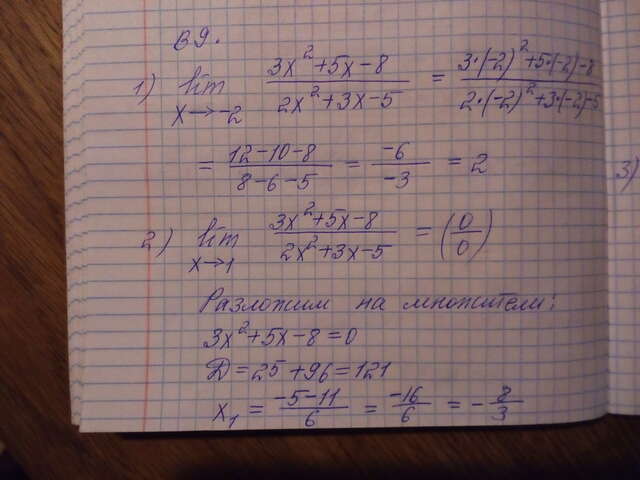 В9.
1) lim x→-2 (3x²+5x-8)/(2x²+3x-5) = (3·(-2)²+5·(-2)-8)/(2·(-2)²+3·(-2)-5)
= (12-10-8)/(8-6-5) = (-6)/(-3) = 2
3)
2) lim x→1 (3x²+5x-8)/(2x²+3x-5) = (0/0)
Разложим на множители:
3x²+5x-8=0
D=25+96=121
x₁ = (-5-11)/6 = (-16)/6 = -8/3